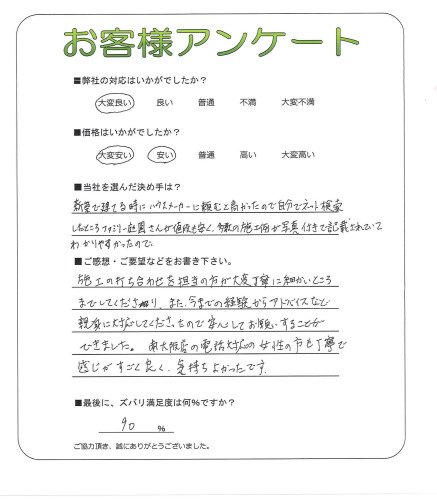 お客様アンケート
■弊社の対応はいかがでしたか？
大変良い　良い　普通　不満　大変不満
■価格はいかがでしたか？
大変安い　安い　普通　高い　大変高い
■当社を選んだ決め手は？
新築で建てる時にハウスメーカーに頼むと高かったので自分でネット検索
したところファミリー庭園さんが値段も安く、多数の施工例が写真付きで記載されていて
わかりやすかったので。
■ご感想・ご要望などをお書き下さい。
施工の打ち合わせを担当の方が大変丁寧に細かいところ
までしてくださり、また、今までの経験からアドバイスなど
親身に対応してくださったので安心してお願いすることが
できました。南大阪店の電話対応の女性の方も丁寧で
感じがすごく良く、気持ちよかったです。
■最後に、ズバリ満足度は何％ですか？
90　％
ご協力頂き、誠にありがとうございました。